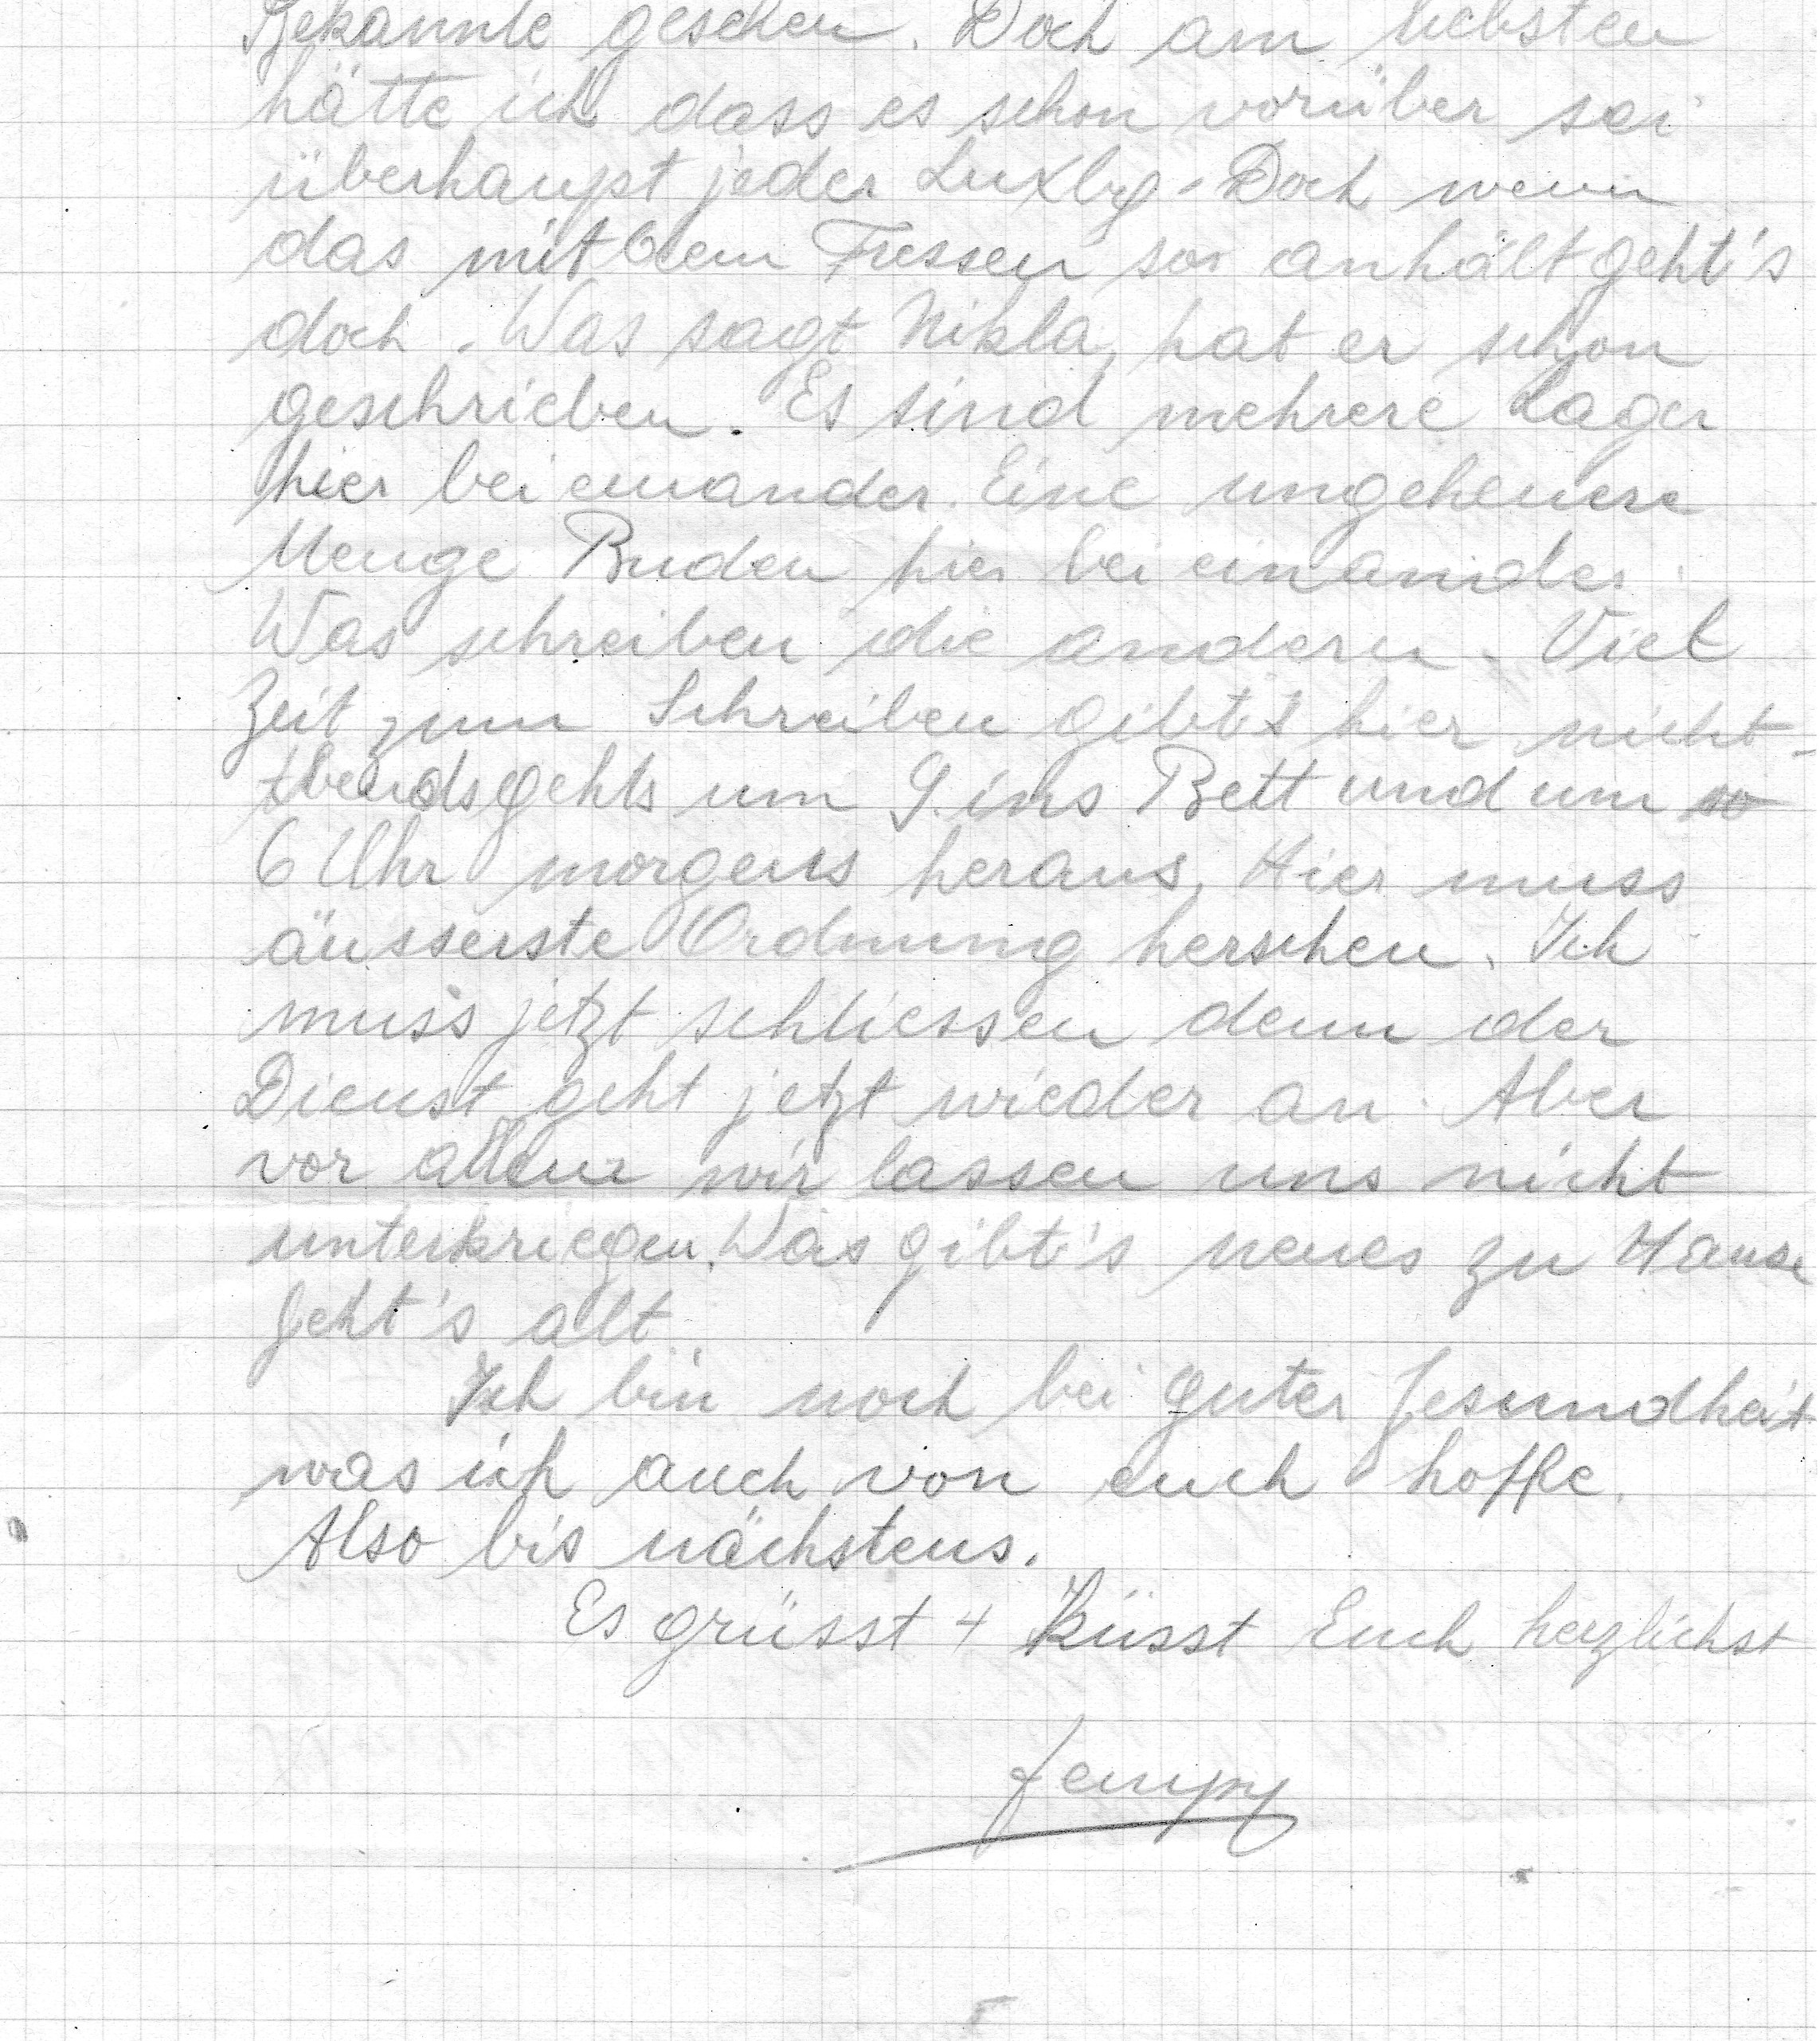 Bekannte gesehen. Doch am liebsten
hätte ich dass es schon vorüber sei
überhaupt jeder Luxbg - Doch wenn
das mit dem Fressen so anhält geht's
doch. Was sagt Nikla, hat er schon
geschrieben. Es sind mehrere Lager
hier bei einander. Eine ungeheuere
Menge Buden hier bei einander.
Was schreiben die andern. Viel
Zeit zum Schreiben gibt's hier nicht -
Abends gehts um 9. ins Bett und um
6 Uhr morgens heraus. Hier muss
äusserste Ordnung herschen. Ich
muss jetzt schliessen denn der
Dienst geht jetzt wieder an. Aber
vor allem wir lassen uns nicht
unterkriegen. Was gibt's neues zu Hause
Geht's alt
Ich bin noch bei guter Gesundheit
was ich auch von euch hoffe.
Also bis nächstens.
Es grüsst + küsst Euch herzlichst
Jempy